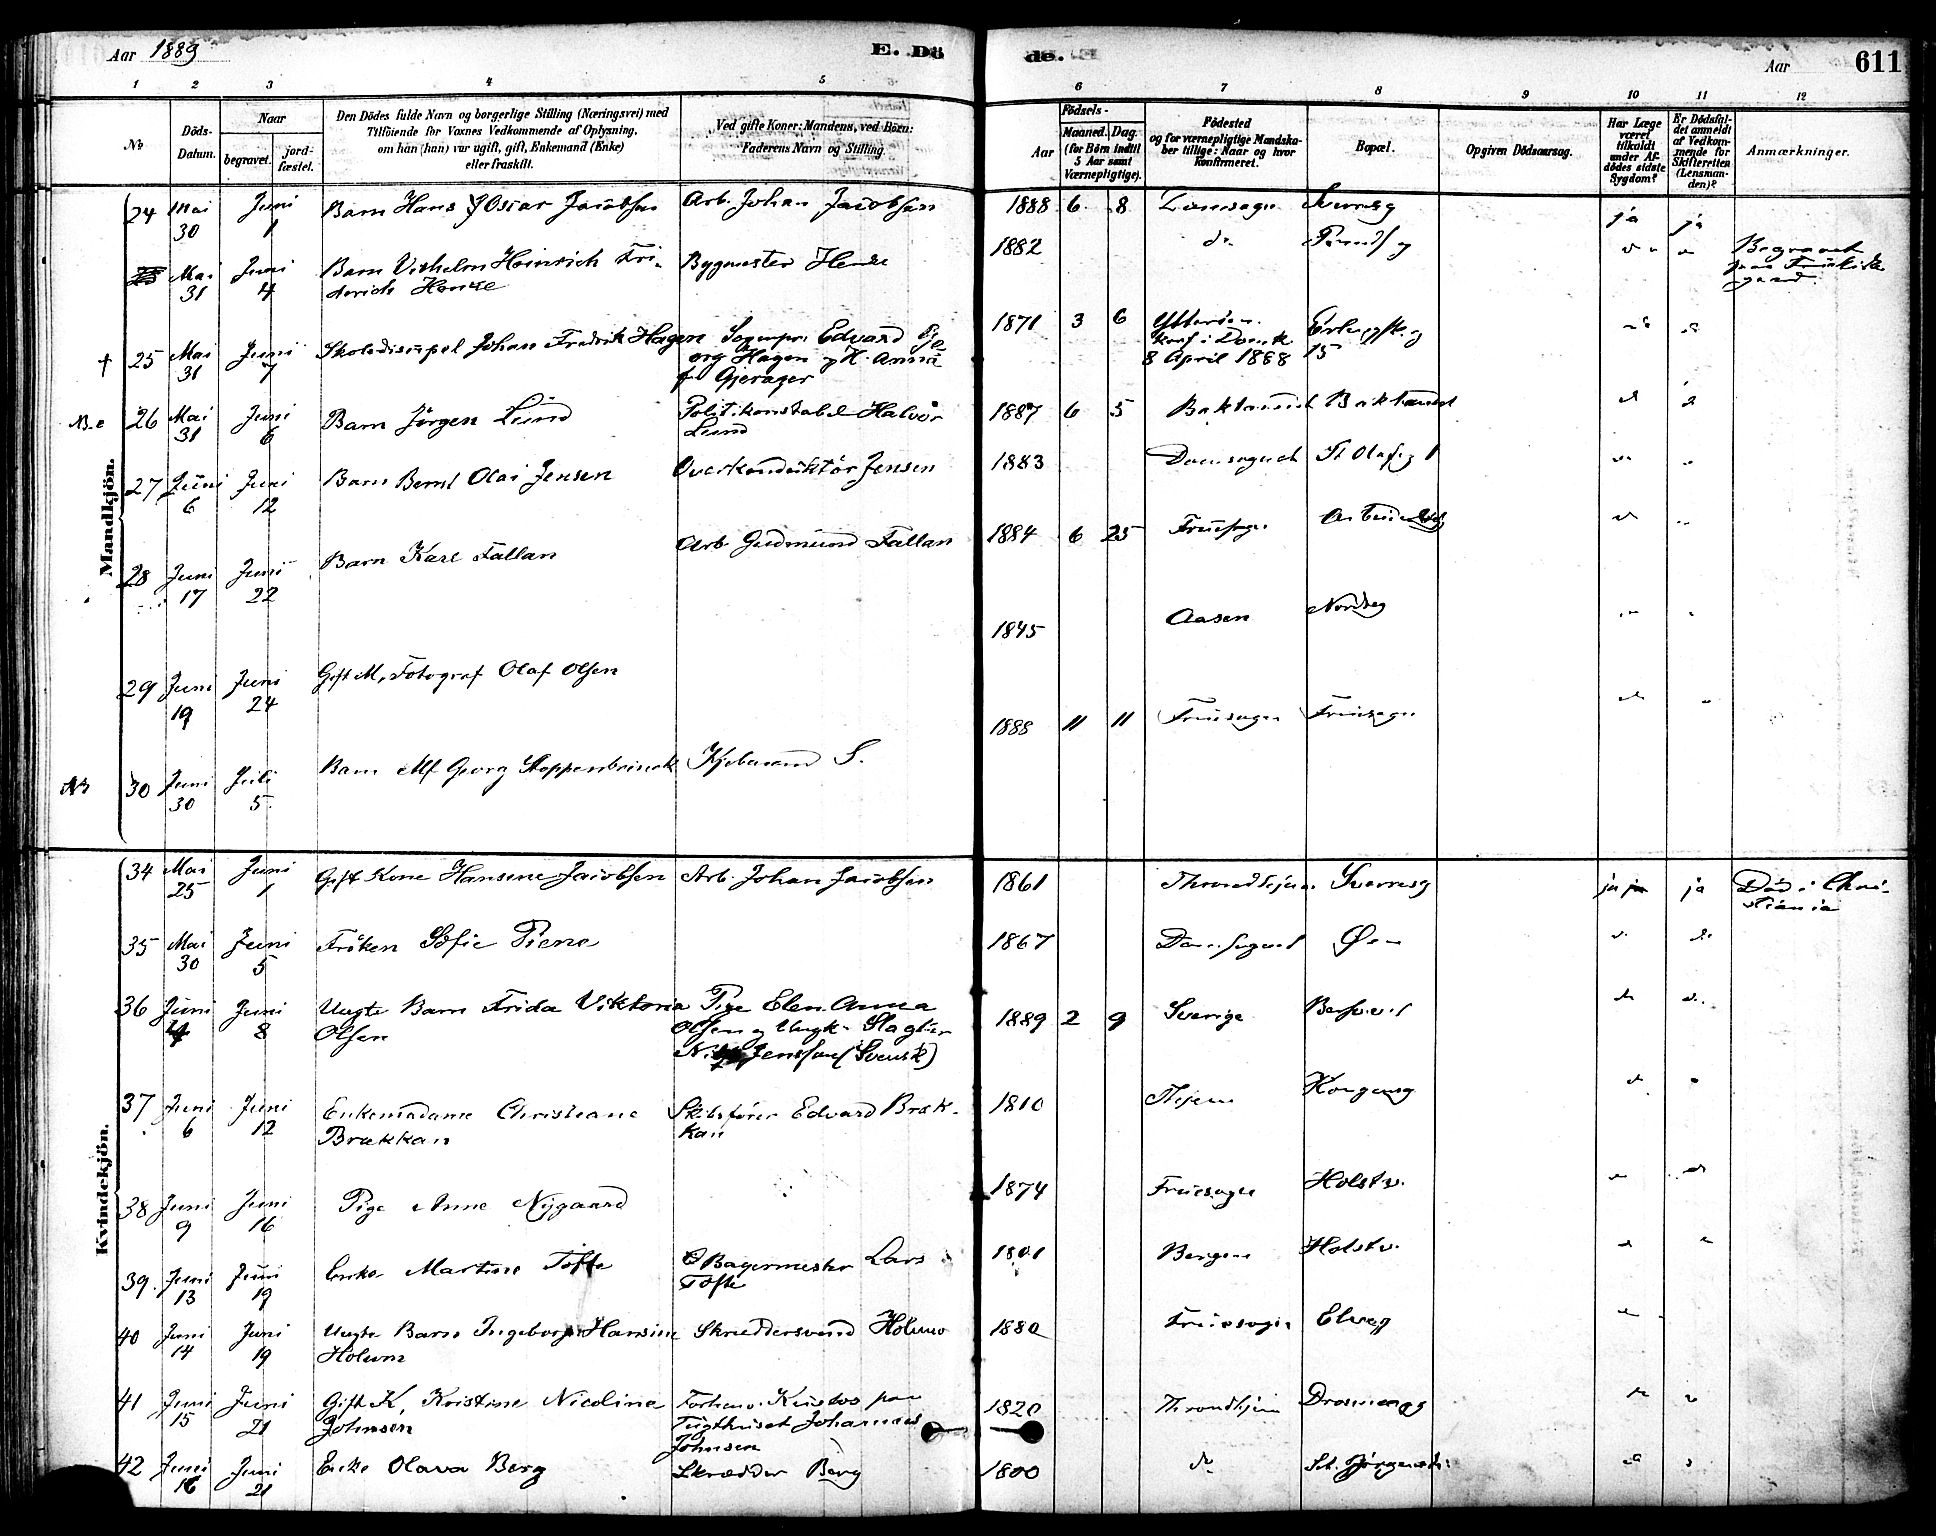 Aar 1889 E. Dö de. Aar 611
1 2 3 4 5 6 7 8 9 10 11 12
No
Döds-Datum.
Naar
begravet.
jordfæstet.
Den Dödes fulde Navn og borgerlige Stilling (Næringsvei) med
Tilföiende for Voxnes Vedkommende af Oplysning,
om han (hun) var ugift, gift, Enkemand (Enke)
eller fraskilt.
Ved gifte Koner: Mandens, ved Börn:
Faderens Navn og Stilling.
Aar
Födsels-
Maaned. Dag.
(for Börn indtil
5 Aar samt
Værnepligtige).
Födested
og for værnepligtige Mandskaber tillige: Naar og hvor
konfirmeret.
Bopæl.
Opgiven Dödsaarsag.
Har Læge
været
tilkaldt
under Afdödes sidste
Sygdom?
Er Dödsfaldet anmeldt
af Vedkommende for
Skifteretten
(Lensmanden)?
Anmærkninger.
Mandkjön.
24 Mai 30 Juni 1 Barn Hans Oscar Jacobsen Arb. Johan Jacobsen 1888 6 8 ja ja
Mai 31 Juni 4 Barn Vilhelm Heinrich Fri-
derich Henze Bygmester Henze 1882 do Begravet
paa
gaard.
† 25 Mai 31 Juni 7 Skoledisipel Johan Fredrik Hagen Edvard
org Hagen og H. Anna
f. Gjerager 1871 3 6
8 April 1888 15
26 Mai 31 Juni 6 Barn Jörgen Lund Politikonstabel Halvor
Lund 1887 6 5 Baklandet Baklandet
27 Juni 6 Juni 12 Barn Bernt Olai Jensen Overkonduktör Jensen 1883 Domsognet St Olafsg 1
28 Juni 17 Juni 22 Barn Karl Fallan Arb Gudmund Fallan 1884 6 25 Fruesogn
29 Juni 19 Juni 24 Gift M, Fotograf Olaf Olsen 1845 Aasen Nordreg
NB 30 Juni 30 Juli 5 Barn Alf Georg Stoppenbrinck Kjøbmand S. 1888 11 11 Fruesogn Fruesogn
Kvindekjön.
34 Mai 25 Juni 1 Gift Kone Hansene Jacobsen Arb. Johan Jacobsen 1861 Throndhjem Sverresg ja ja Død i Chri-
stiania
35 Mai 30 Juni 5 Fröken Sofie Piene 1867 Domsognet Øen
36 Juni 4 Juni 8 Uægte Barn Frida Viktoria
Olsen Pige Elen Anna
Olsen og Ungk. Slagter
Jensson (Svensk) 1889 2 9 Sverige
37 Juni 6 Juni 12 Enkemadame Christiane
Brækkan Skibsförer Edvard Bræk-
kan 1810 Thjem Kongensg
38 Juni 9 Juni 16 Pige Anne Nygaard 1874 Fruesogn Holstv.
39 Juni 13 Juni 19 Enke Martine Tofte Bagermester Lars
Tofte 1801 Bergen Holstv.
40 Juni 14 Juni 19 Uægte Barn Ingeborg Hansine
Holum Skræddersvend Holmo 1880 Fruesogn Elveg
41 Juni 15 Juni 21 Gift K. Kristine Nicoline
Johnsen Forhenv. Kustos paa
Tugthuset Johannes
Johnsen 1820 Throndhjem Dronningg
42 Juni 16 Juni 21 Enke Olava Berg Skrædder Berg 1800 do St. Jørgensv.